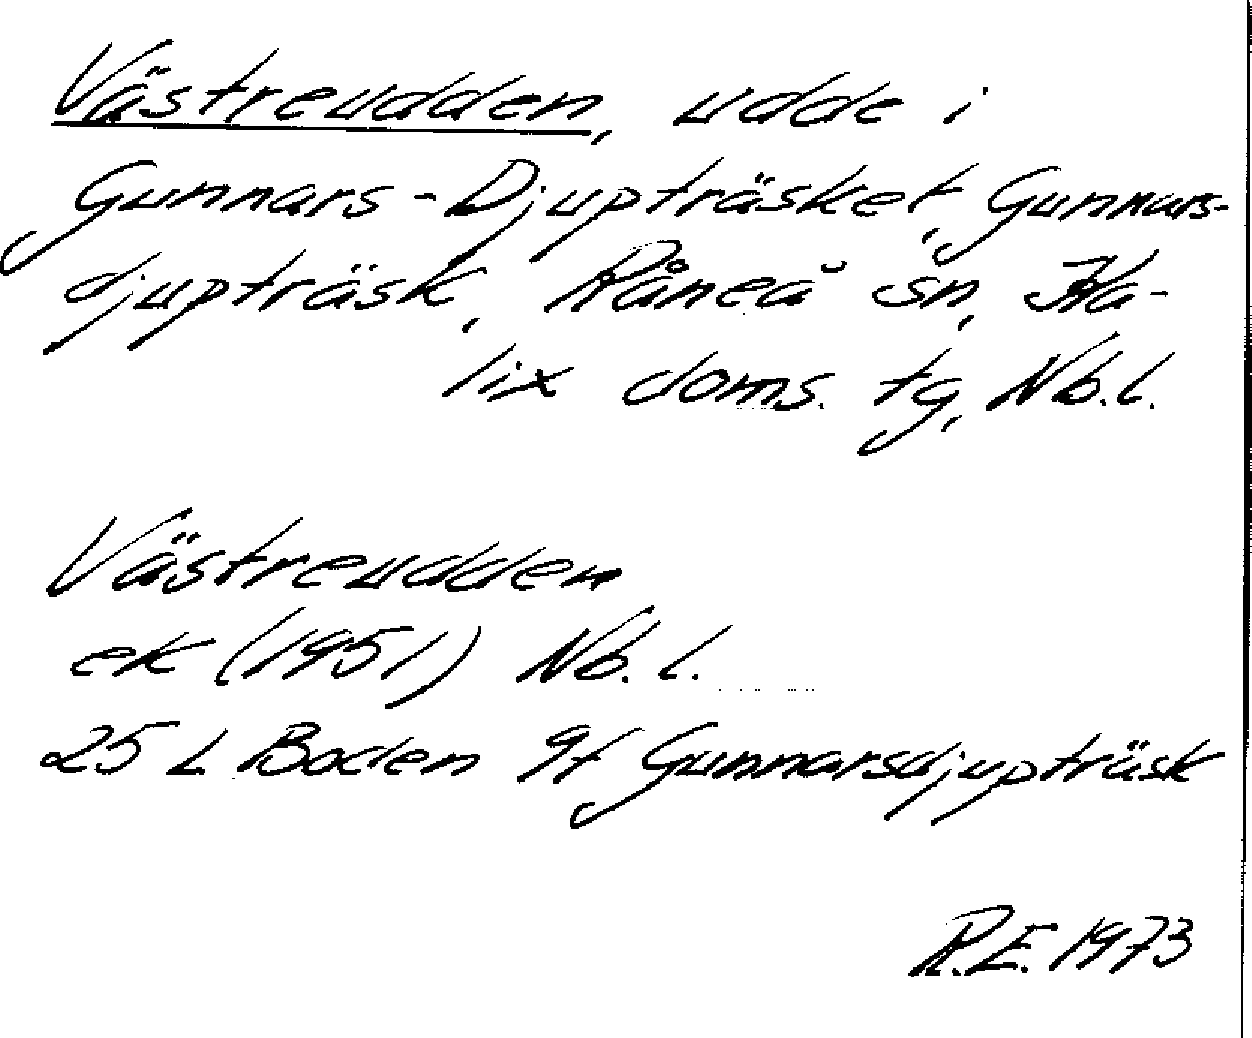 Västreudden, udde i
Gunnars-Djupträsket, Gunnars-
djupträsk, Råneå sn, Ka-
lix doms. tg, Nb.l.
Västreudden
ek (1951) Nb.l.
25 L Boden 9f Gunnarsdjupträsk
R.E. 1973